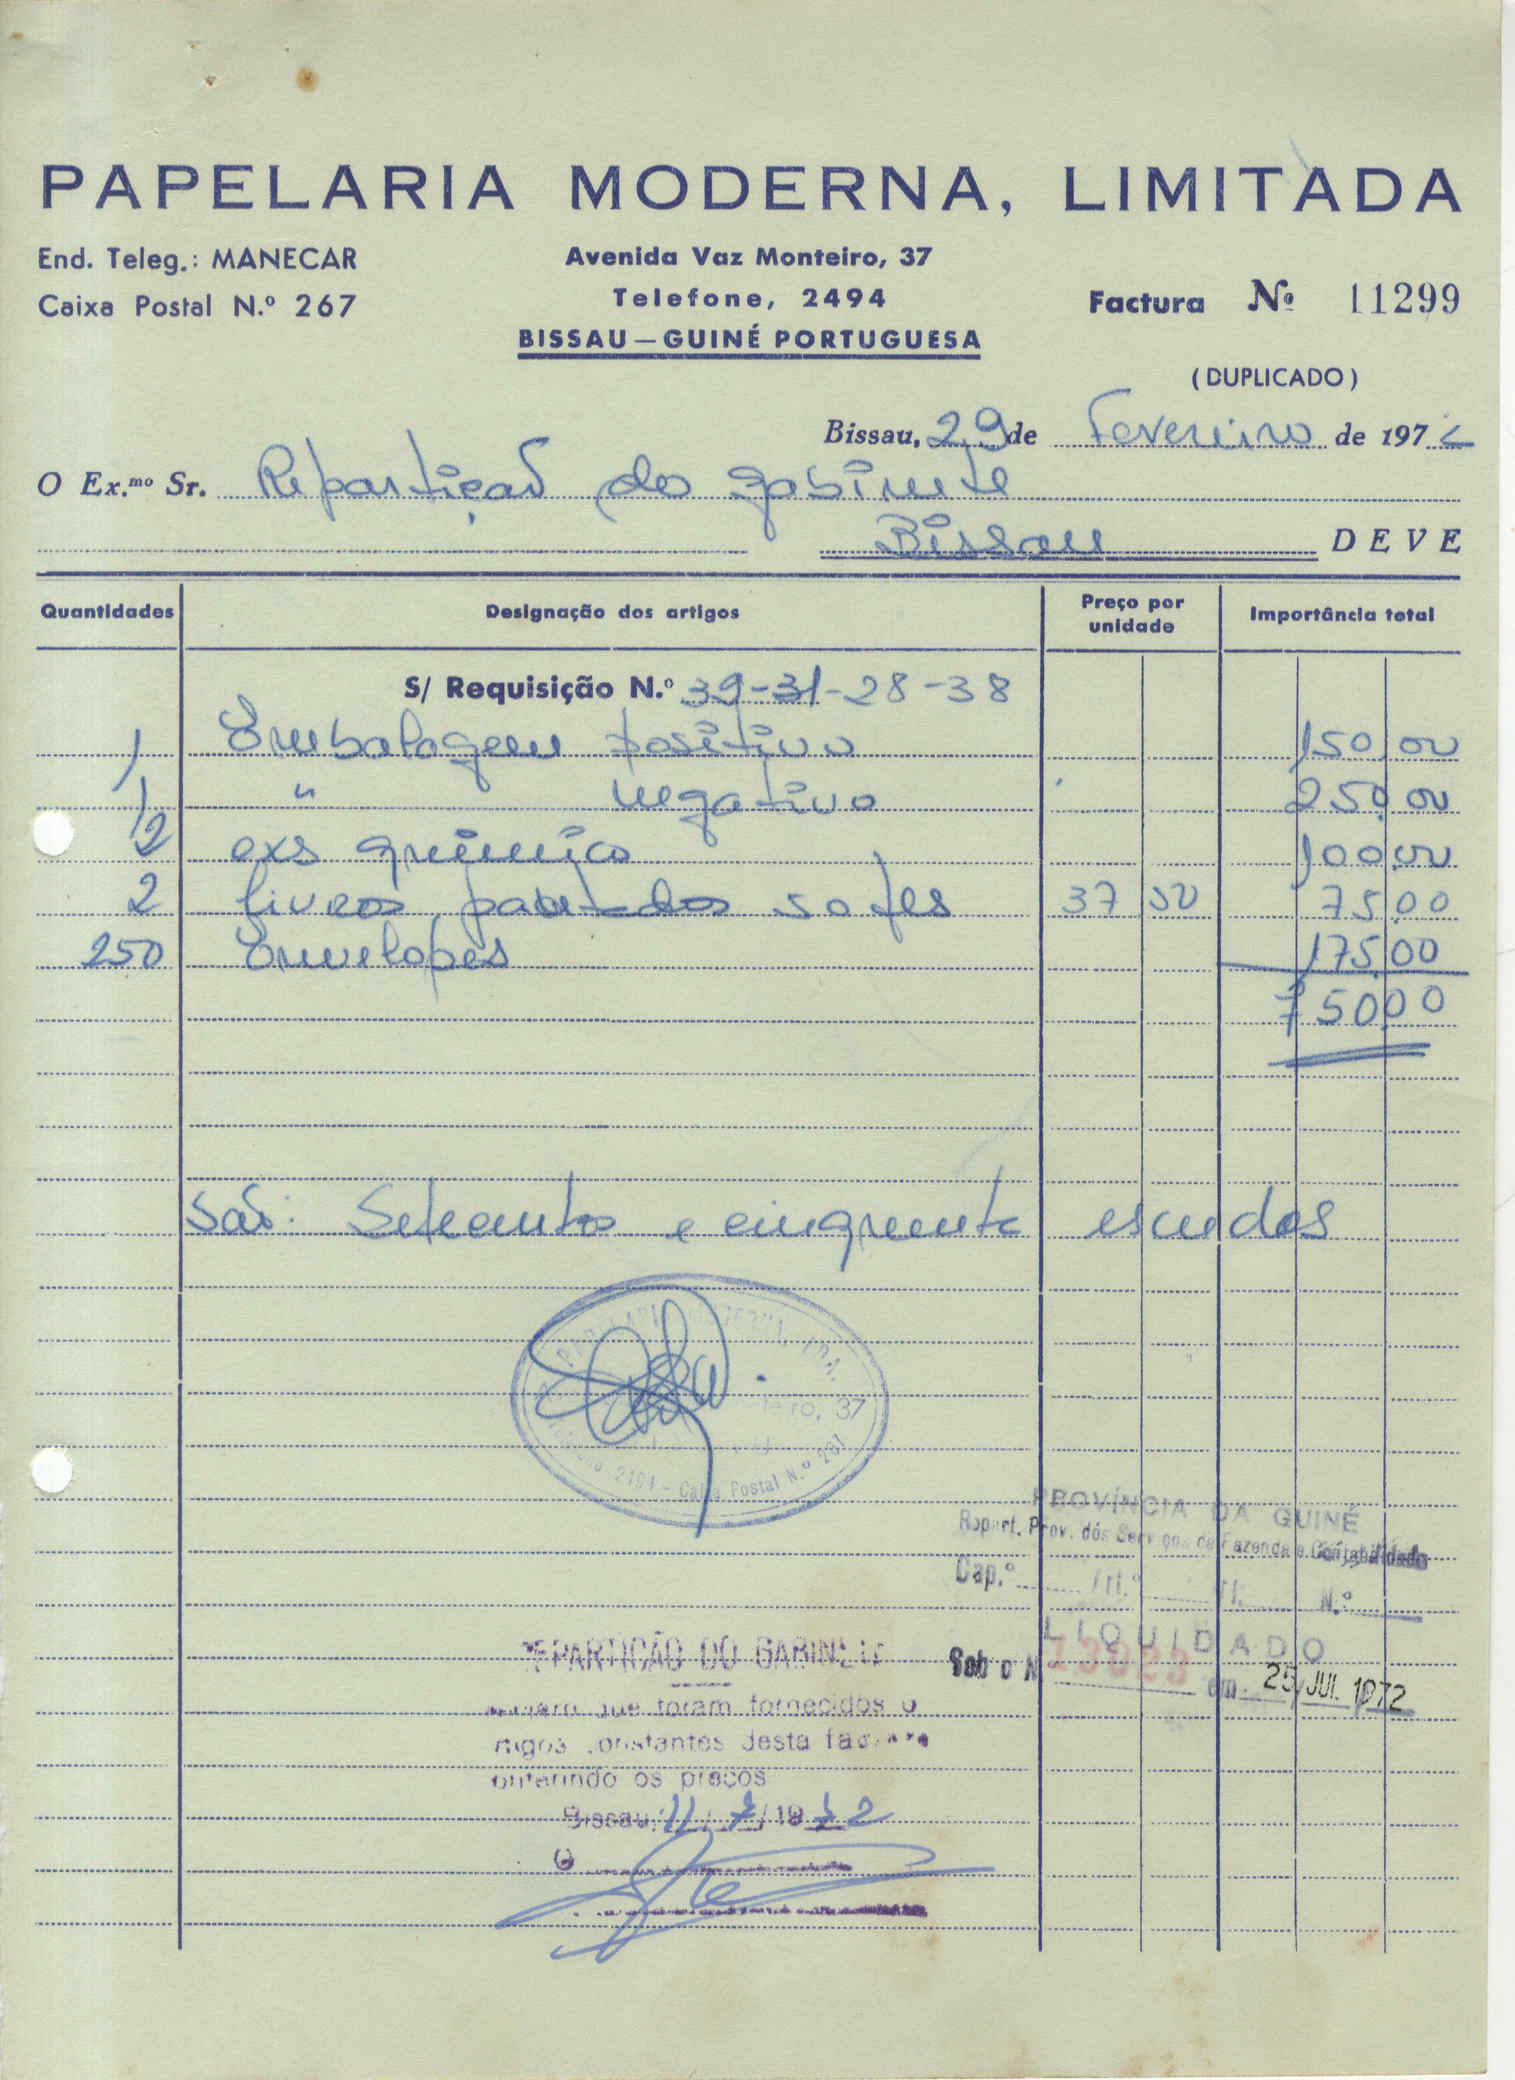 PAPELARIA MODERNA, LIMITADA
End. Teleg.: MANECAR
Avenida Vaz Monteiro, 37
Caixa Postal N.º 267
Telefone, 2494
Factura Nº 11299
BISSAU — GUINÉ PORTUGUESA
(DUPLICADO)
Bissau, 29 de Fevereiro de 1972
O Ex.mo Sr. Repartição do gabinete
Bissau DEVE
Quantidades Designação dos artigos Preço por unidade Importância total
S/ Requisição N.º 39-31-28-38
1 Embalagem positivo 150,00
1 " negativo 250,00
2 exs quimico 100,00
2 livros pautados 50 fls 37 50 75,00
250 Envelopes 175,00
750,00
São: Setecentos e cinquenta escudos
37
2494 - Caixa Postal N.º 267
PROVÍNCIA DA GUINÉ
Repart. Prov. dós Serviços de Fazenda e Contabilidade
Cap.º Art.º N.º
LIQUIDADO
REPARTIÇÃO DO GABINETE
Sob o N
em 25 JUL. 1972
que foram fornecidos o
constantes desta factura
os preços
Bissau, 11/7/1972
O